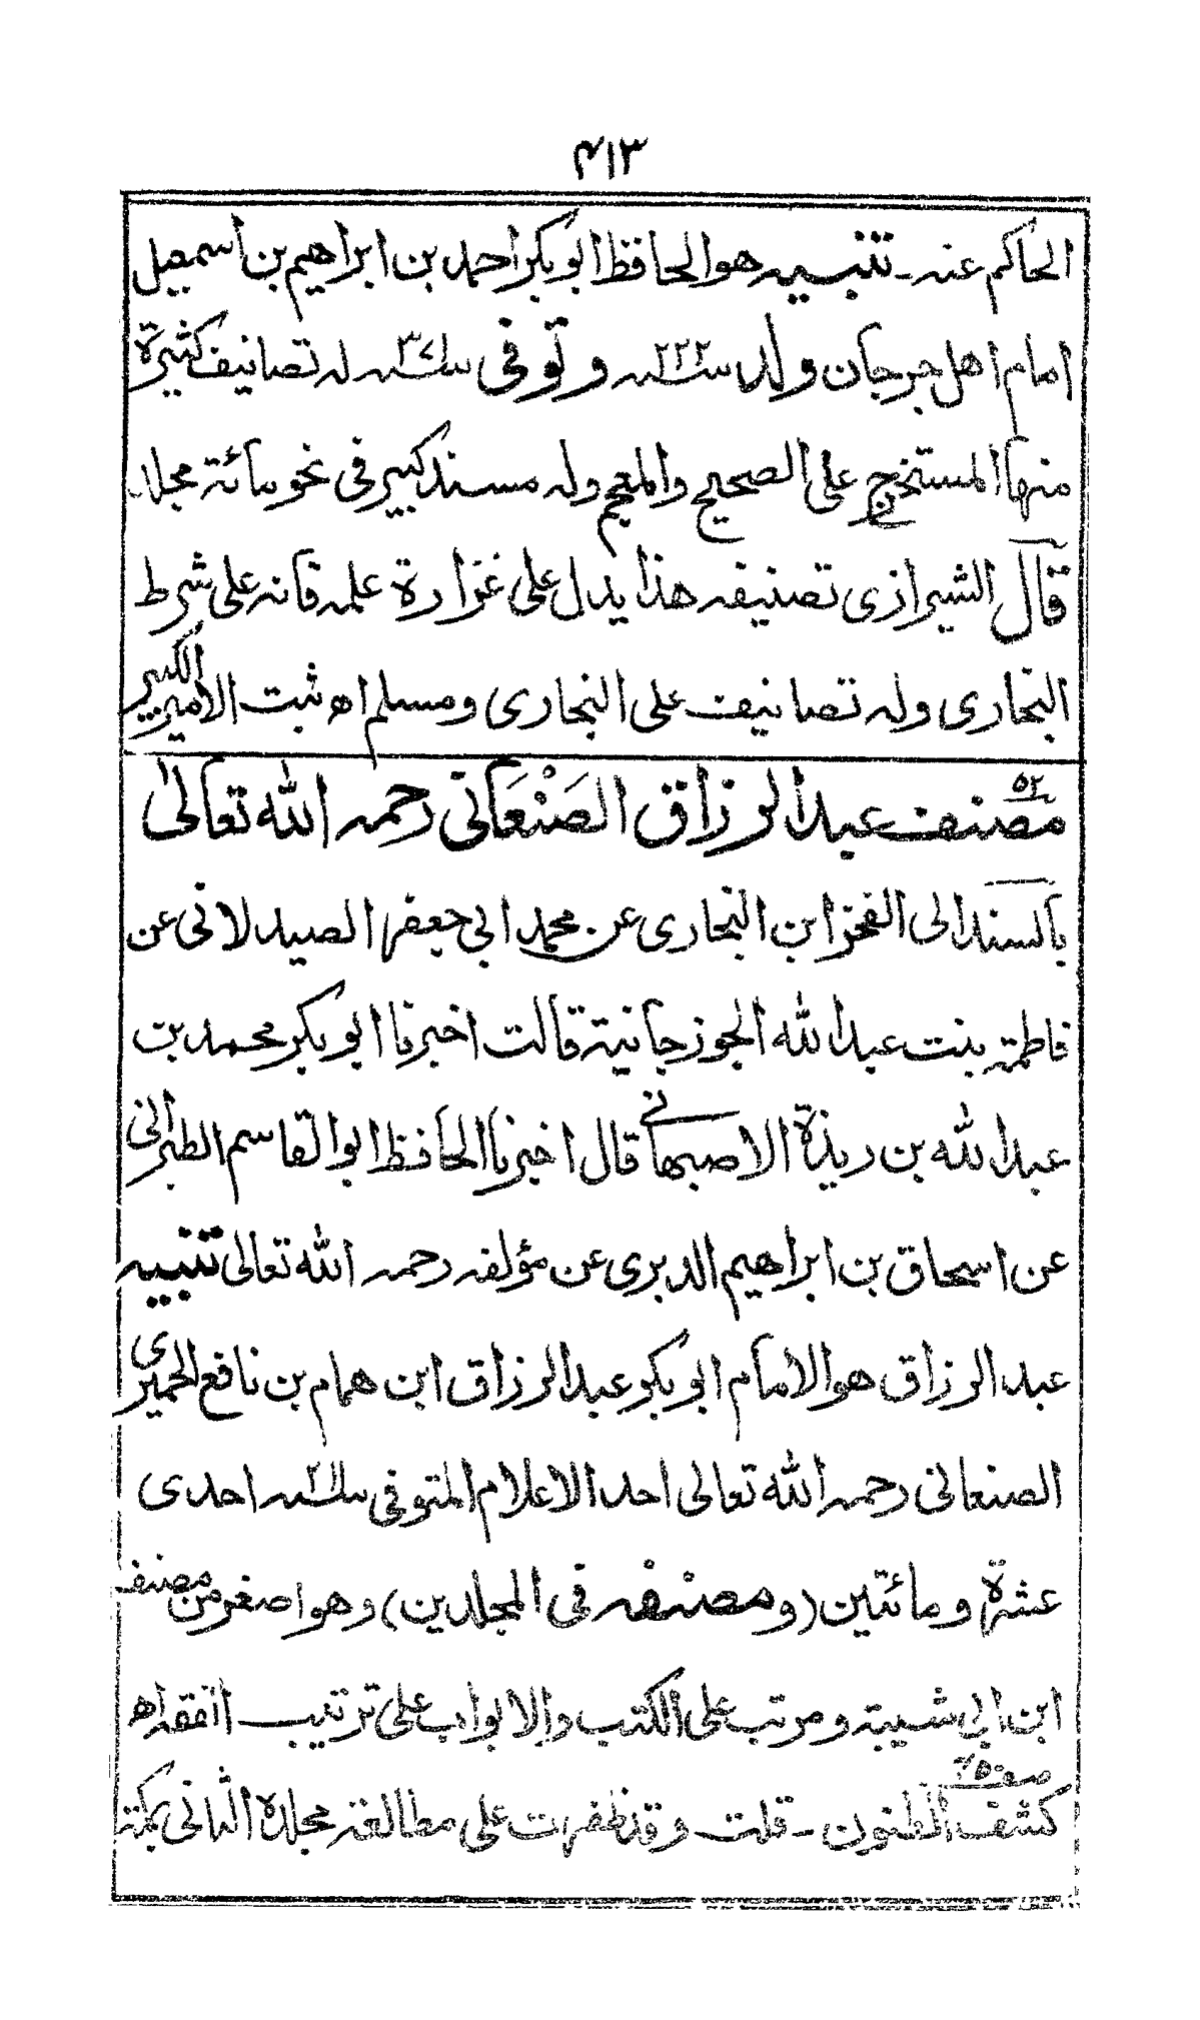 ٤١٣
الحاكم عنه - تنبيه هو الحافظ ابو بكر احمد بن ابراهيم بن اسمعيل
امام اهل جرجان ولد سنة ٢٢٢ و توفى سنة ٣٧١ له تصانيف كثيرة
منها المستخرج على الصحيح والمعجم وله مسند كبير فى نحو مائة مجلد
قال الشيرازى تصنيفه هذا يدل على غزارة علمه فانه على شرط
البخارى وله تصانيف على البخارى ومسلم اه ثبت الامير الكبير
٥٢
مصنف عبد الرزاق الصَنْعَانى رحمه الله تعالىٰ
بالسند الى الفخر ابن البخارى عن محمد ابى جعفر الصيدلانى عن
فاطمة بنت عبد الله الجوزجانية قالت اخبرنا ابو بكر محمد بن
عبد الله بن ريذة الاصبهانى قال اخبرنا الحافظ ابو القاسم الطبرانى
عن اسحاق بن ابراهيم الدبرى عن مؤلفه رحمه الله تعالى تنبيه
عبد الرزاق هو الامام ابو بكر عبد الرزاق ابن همام بن نافع الحميرى
الصنعانى رحمه الله تعالى احد الاعلام المتوفى سنة ٢١١ احدى
عشرة ومائتين (ومصنفه فى المجلدين) وهو اصغر من مصنف
ابن ابى شيبة ومرتب على الكتب والابواب على ترتيب الفقه اه
كشف الظنون - قلت وقد ظفرت على مطالعة مجلده الثانى بمكتبة